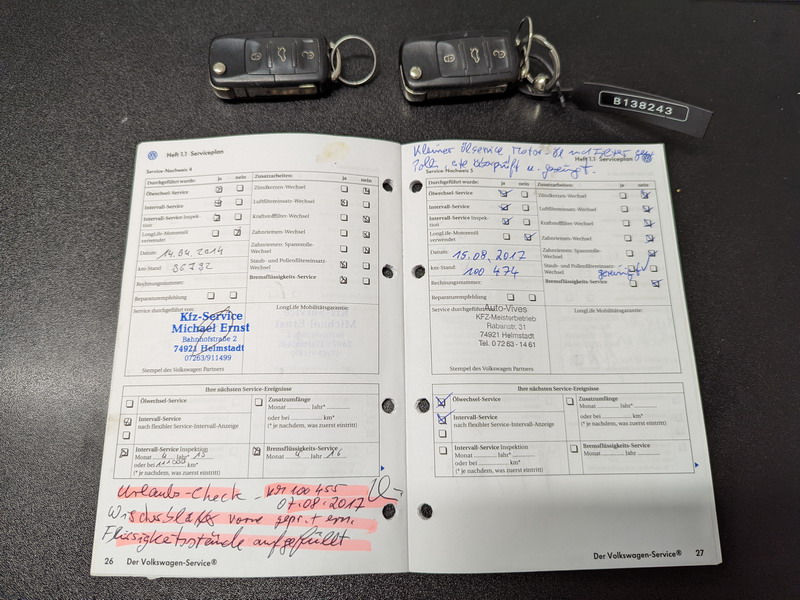 B138243
Heft 1.1 Serviceplan
Service-Nachweis 4
Durchgeführt wurde: ja nein
Zusatzarbeiten: ja nein
Ölwechsel-Service
Zündkerzen-Wechsel
Intervall-Service
Luftfiltereinsatz-Wechsel
Intervall-Service Inspek-
tion
Kraftstofffilter-Wechsel
LongLife-Motorenöl
verwendet
Zahnriemen-Wechsel
Datum: 14.04.2014
Zahnriemen, Spannrolle-
Wechsel
km-Stand:
Staub- und Pollenfiltereinsatz-
Wechsel
Rechnungsnummer:
Bremsflüssigkeits-Service
Reparaturempfehlung
Service durchgeführt von:
LongLife Mobilitätsgarantie:
Kfz-Service
Michael Ernst
Bahnhofstraße 2
74921 Helmstadt
07263/911499
Stempel des Volkswagen Partners
Ihre nächsten Service-Ereignisse
Ölwechsel-Service
Zusatzumfänge
Monat Jahr*
Intervall-Service
nach flexibler Service-Intervall-Anzeige
oder bei km*
(* je nachdem, was zuerst eintritt)
Intervall-Service Inspektion
Monat 4 Jahr 15
oder bei km*
(* je nachdem, was zuerst eintritt)
Bremsflüssigkeits-Service
Monat 4 Jahr 16
Urlaubs-Check - KM 100 455
07.08.2017
vorne
Flüssigkeitsstände aufgefüllt
26 Der Volkswagen-Service®
Kleiner Ölservice Motor-Öl und
überprüft u. gereinigt.
Heft 1.1 Serviceplan
Service-Nachweis 5
Durchgeführt wurde: ja nein
Zusatzarbeiten: ja nein
Ölwechsel-Service
Zündkerzen-Wechsel
Intervall-Service
Luftfiltereinsatz-Wechsel
Intervall-Service Inspek-
tion
Kraftstofffilter-Wechsel
LongLife-Motorenöl
verwendet
Zahnriemen-Wechsel
Datum: 15.08.2017
Zahnriemen, Spannrolle-
Wechsel
km-Stand: 100 474
Staub- und Pollenfiltereinsatz-
Wechsel gereinigt
Rechnungsnummer:
Bremsflüssigkeits-Service
Reparaturempfehlung
Service durchgeführt
LongLife Mobilitätsgarantie:
Auto-Vives
KFZ-Meisterbetrieb
Rabanstr. 31
74921 Helmstadt
Tel. 0 72 63 - 14 61
Stempel des Volkswagen Partners
Ihre nächsten Service-Ereignisse
Ölwechsel-Service
Zusatzumfänge
Monat Jahr*
Intervall-Service
nach flexibler Service-Intervall-Anzeige
oder bei km*
(* je nachdem, was zuerst eintritt)
Intervall-Service Inspektion
Monat Jahr*
oder bei km*
(* je nachdem, was zuerst eintritt)
Bremsflüssigkeits-Service
Monat Jahr
Der Volkswagen-Service® 27